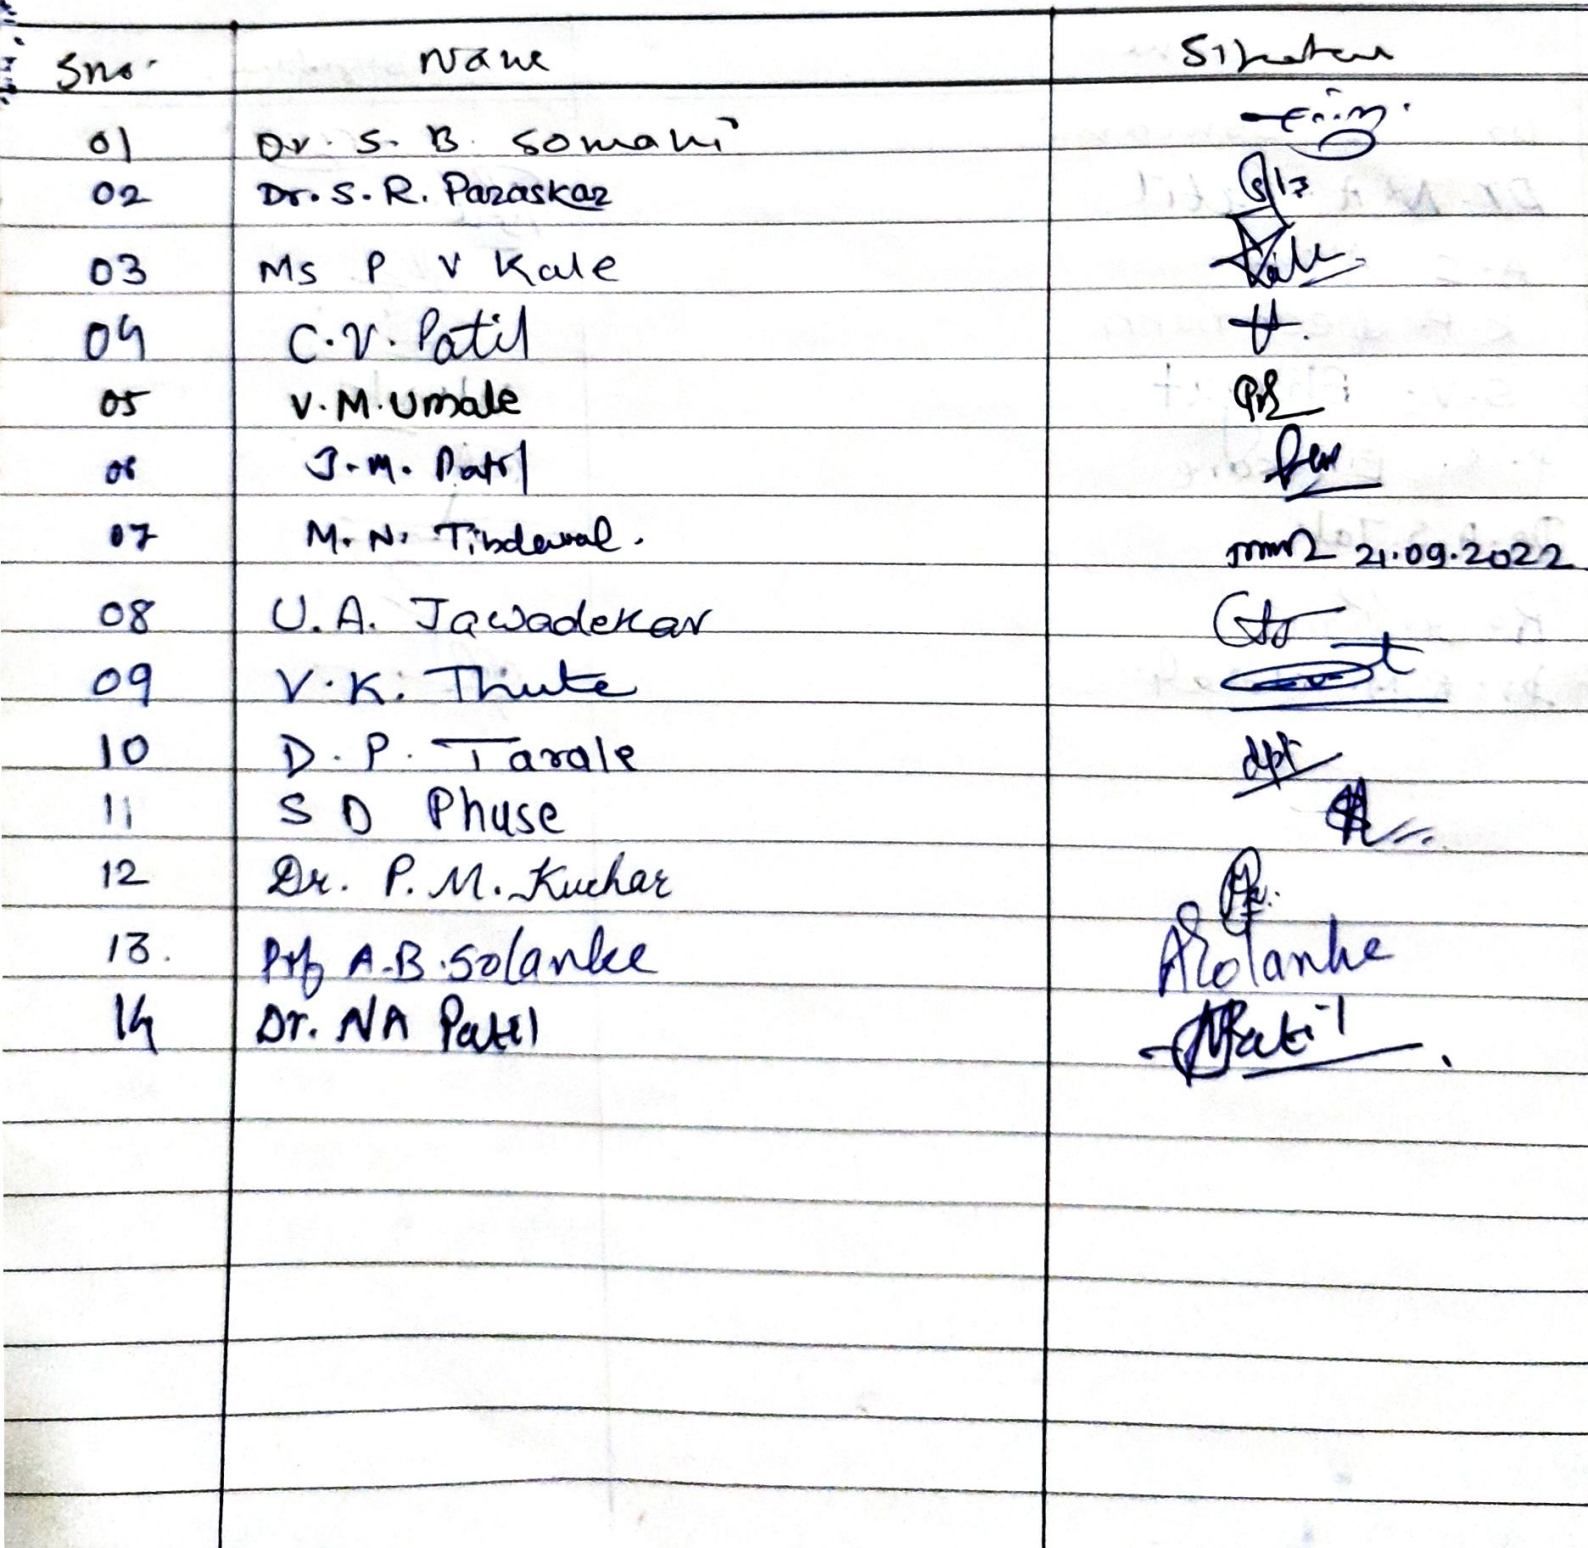 Sno. Name Signature
01 Dr. S. B. Somani
02 Dr. S. R. Paraskar
03 Ms P V Kale Kale
04 C.V. Patil
05 V.M. Umale
06 J.M. Patil
07 M. N. Tibdewal. 21.09.2022
08 U. A. Jawadekar
09 V.K. Thute
10 D. P. Tarale dpt
11 S D Phuse
12 Dr. P. M. Kuchar
13. Prof A.B. Solanke ASolanke
14 Dr. NA Patil NPatil